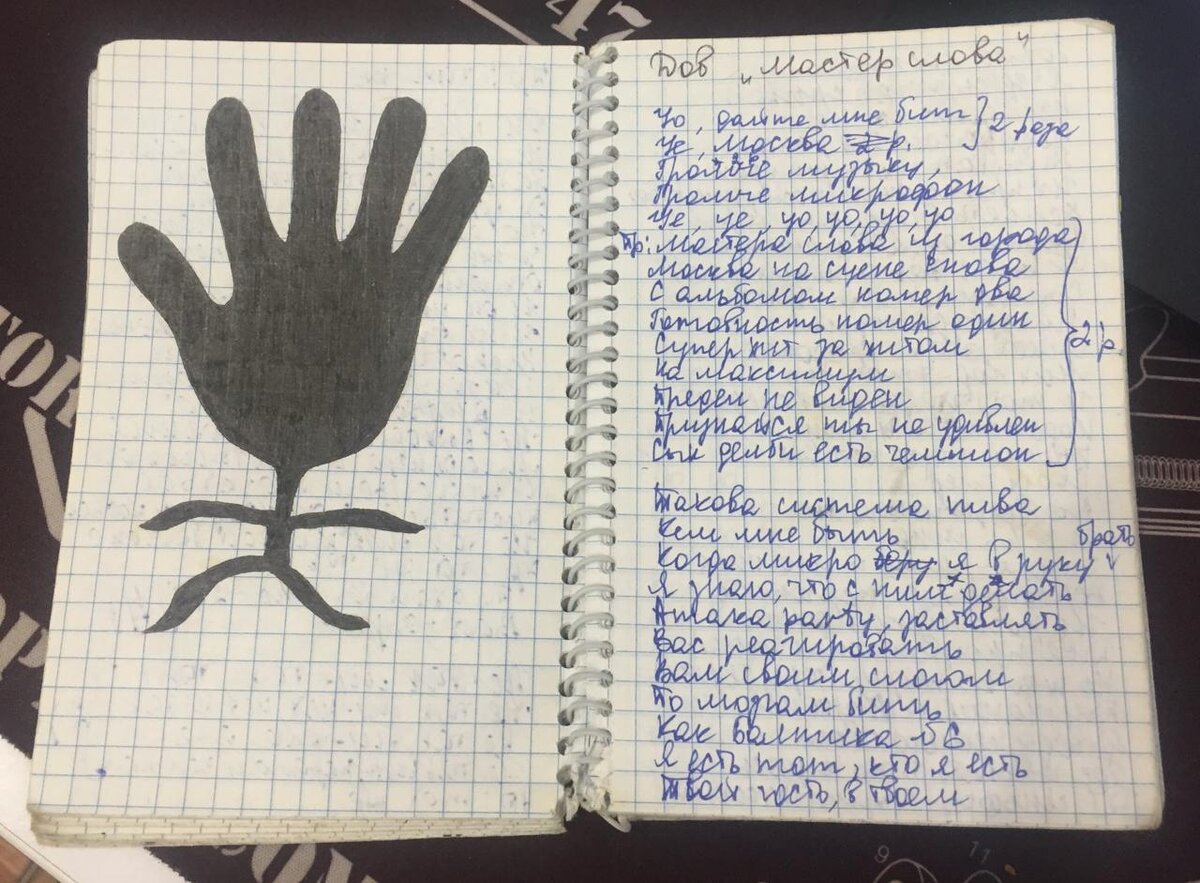 47
Дов „Мастер слова"
Уо, дайте мне бит } 2 раза
Уе, Москва 2 р.
Громче музыку,
Громче микрофон
Уе, уе, уо, уо, уо, уо
Пр: Мастера слова из города
Москва на сцене снова
С альбомом номер два
Готовность номер один
Супер хит за хитом
2 р.
На максимум
Предел не виден
Признайся ты не удивлен
Сын делби есть чемпион
Такова система пива
Кем мне быть
Когда микро беру я в руку брать
Я знаю, что с ним делать
Атака party, заставлять
Вас реагировать
Вам своим слогом
По мозгам бить
Как Балтика №6
Я есть тот, кто я есть
Твой гость, в твоем
9
11